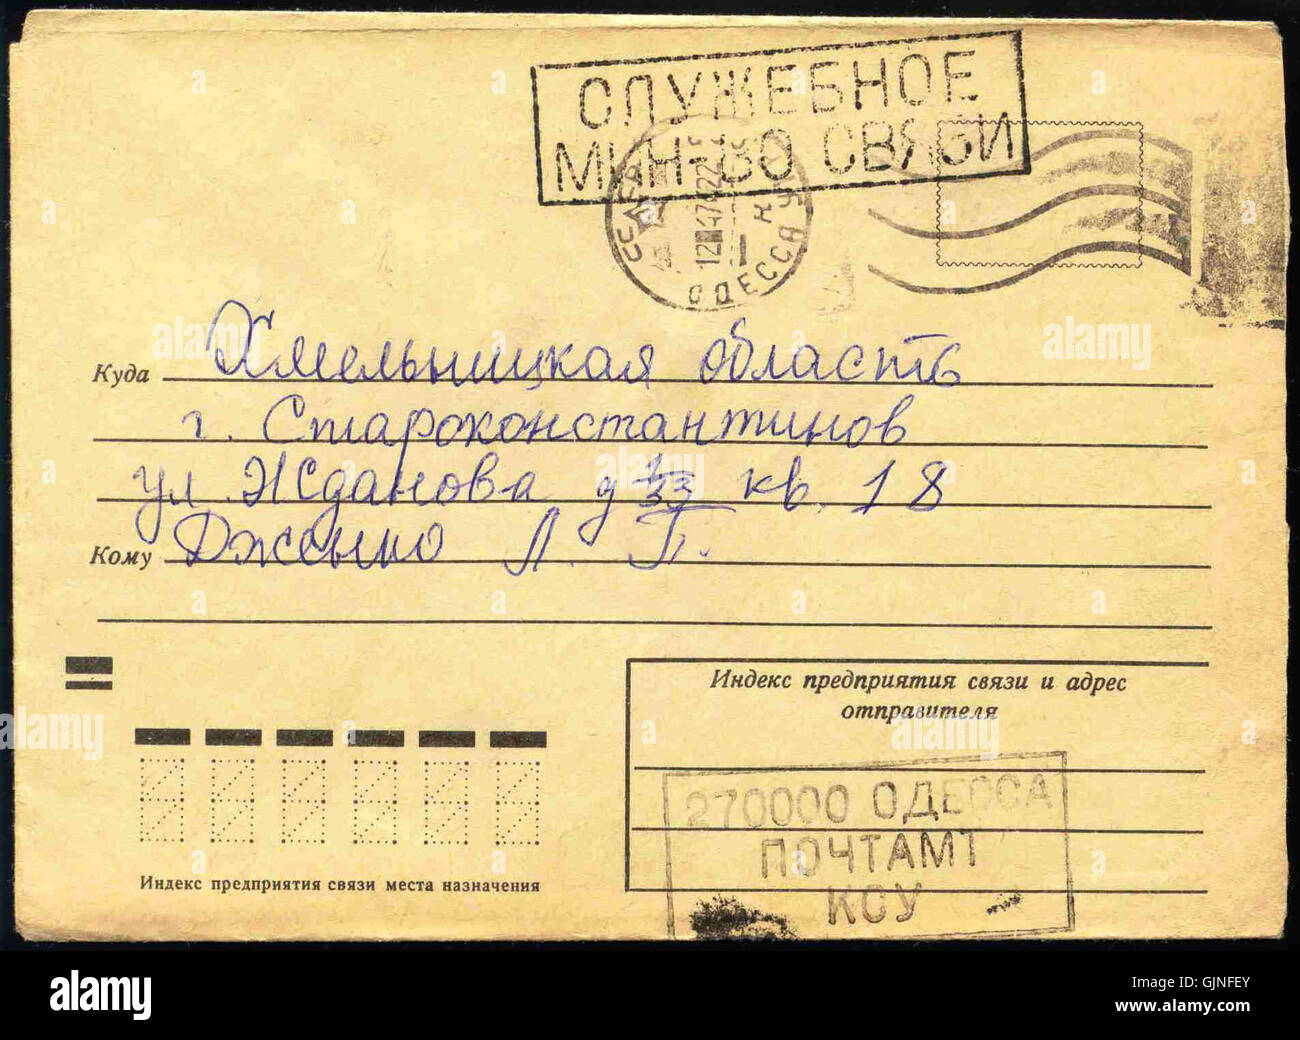 СЛУЖЕБНОЕ
МИН-ВО СВЯЗИ
СССР
ОДЕССА
Куда Хмельницкая область
г. Староконстантинов
ул. Жданова д 1/33 кв. 18
Кому Дженко Л. П.
Индекс предприятия связи и адрес
отправителя
270000 ОДЕССА
ПОЧТАМТ
КОУ
Индекс предприятия связи места назначения
alamy
alamy
Image ID: GJNFEY
www.alamy.com